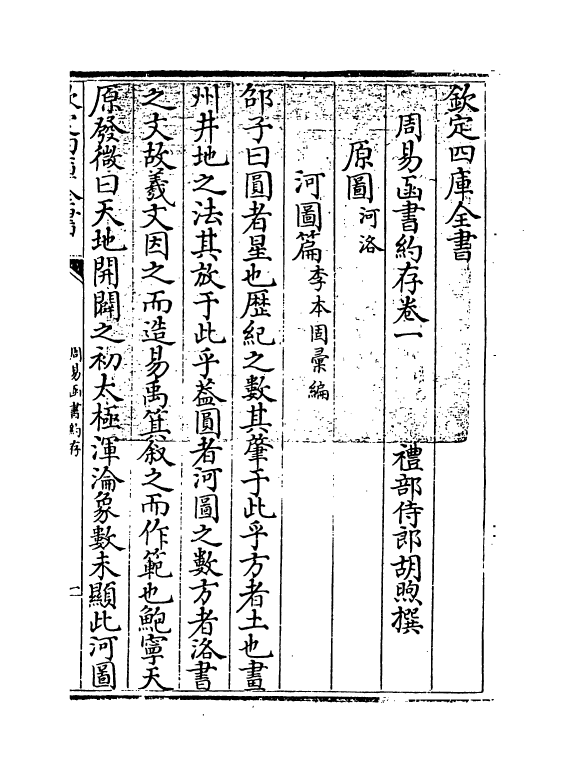 欽定四庫全書
周易函書約存卷一　禮部侍郎胡煦撰
原圖 河洛
河圖篇 李本固彙編
邵子曰圓者星也歴紀之數其肇于此乎方者土也畫
州井地之法其放于此乎葢圓者河圖之數方者洛書
之文故羲文因之而造易禹箕叙之而作範也鮑寧天
原發微曰天地開闢之初太極渾淪象數未顯此河圖
欽定四庫全書
周易函書約存
一